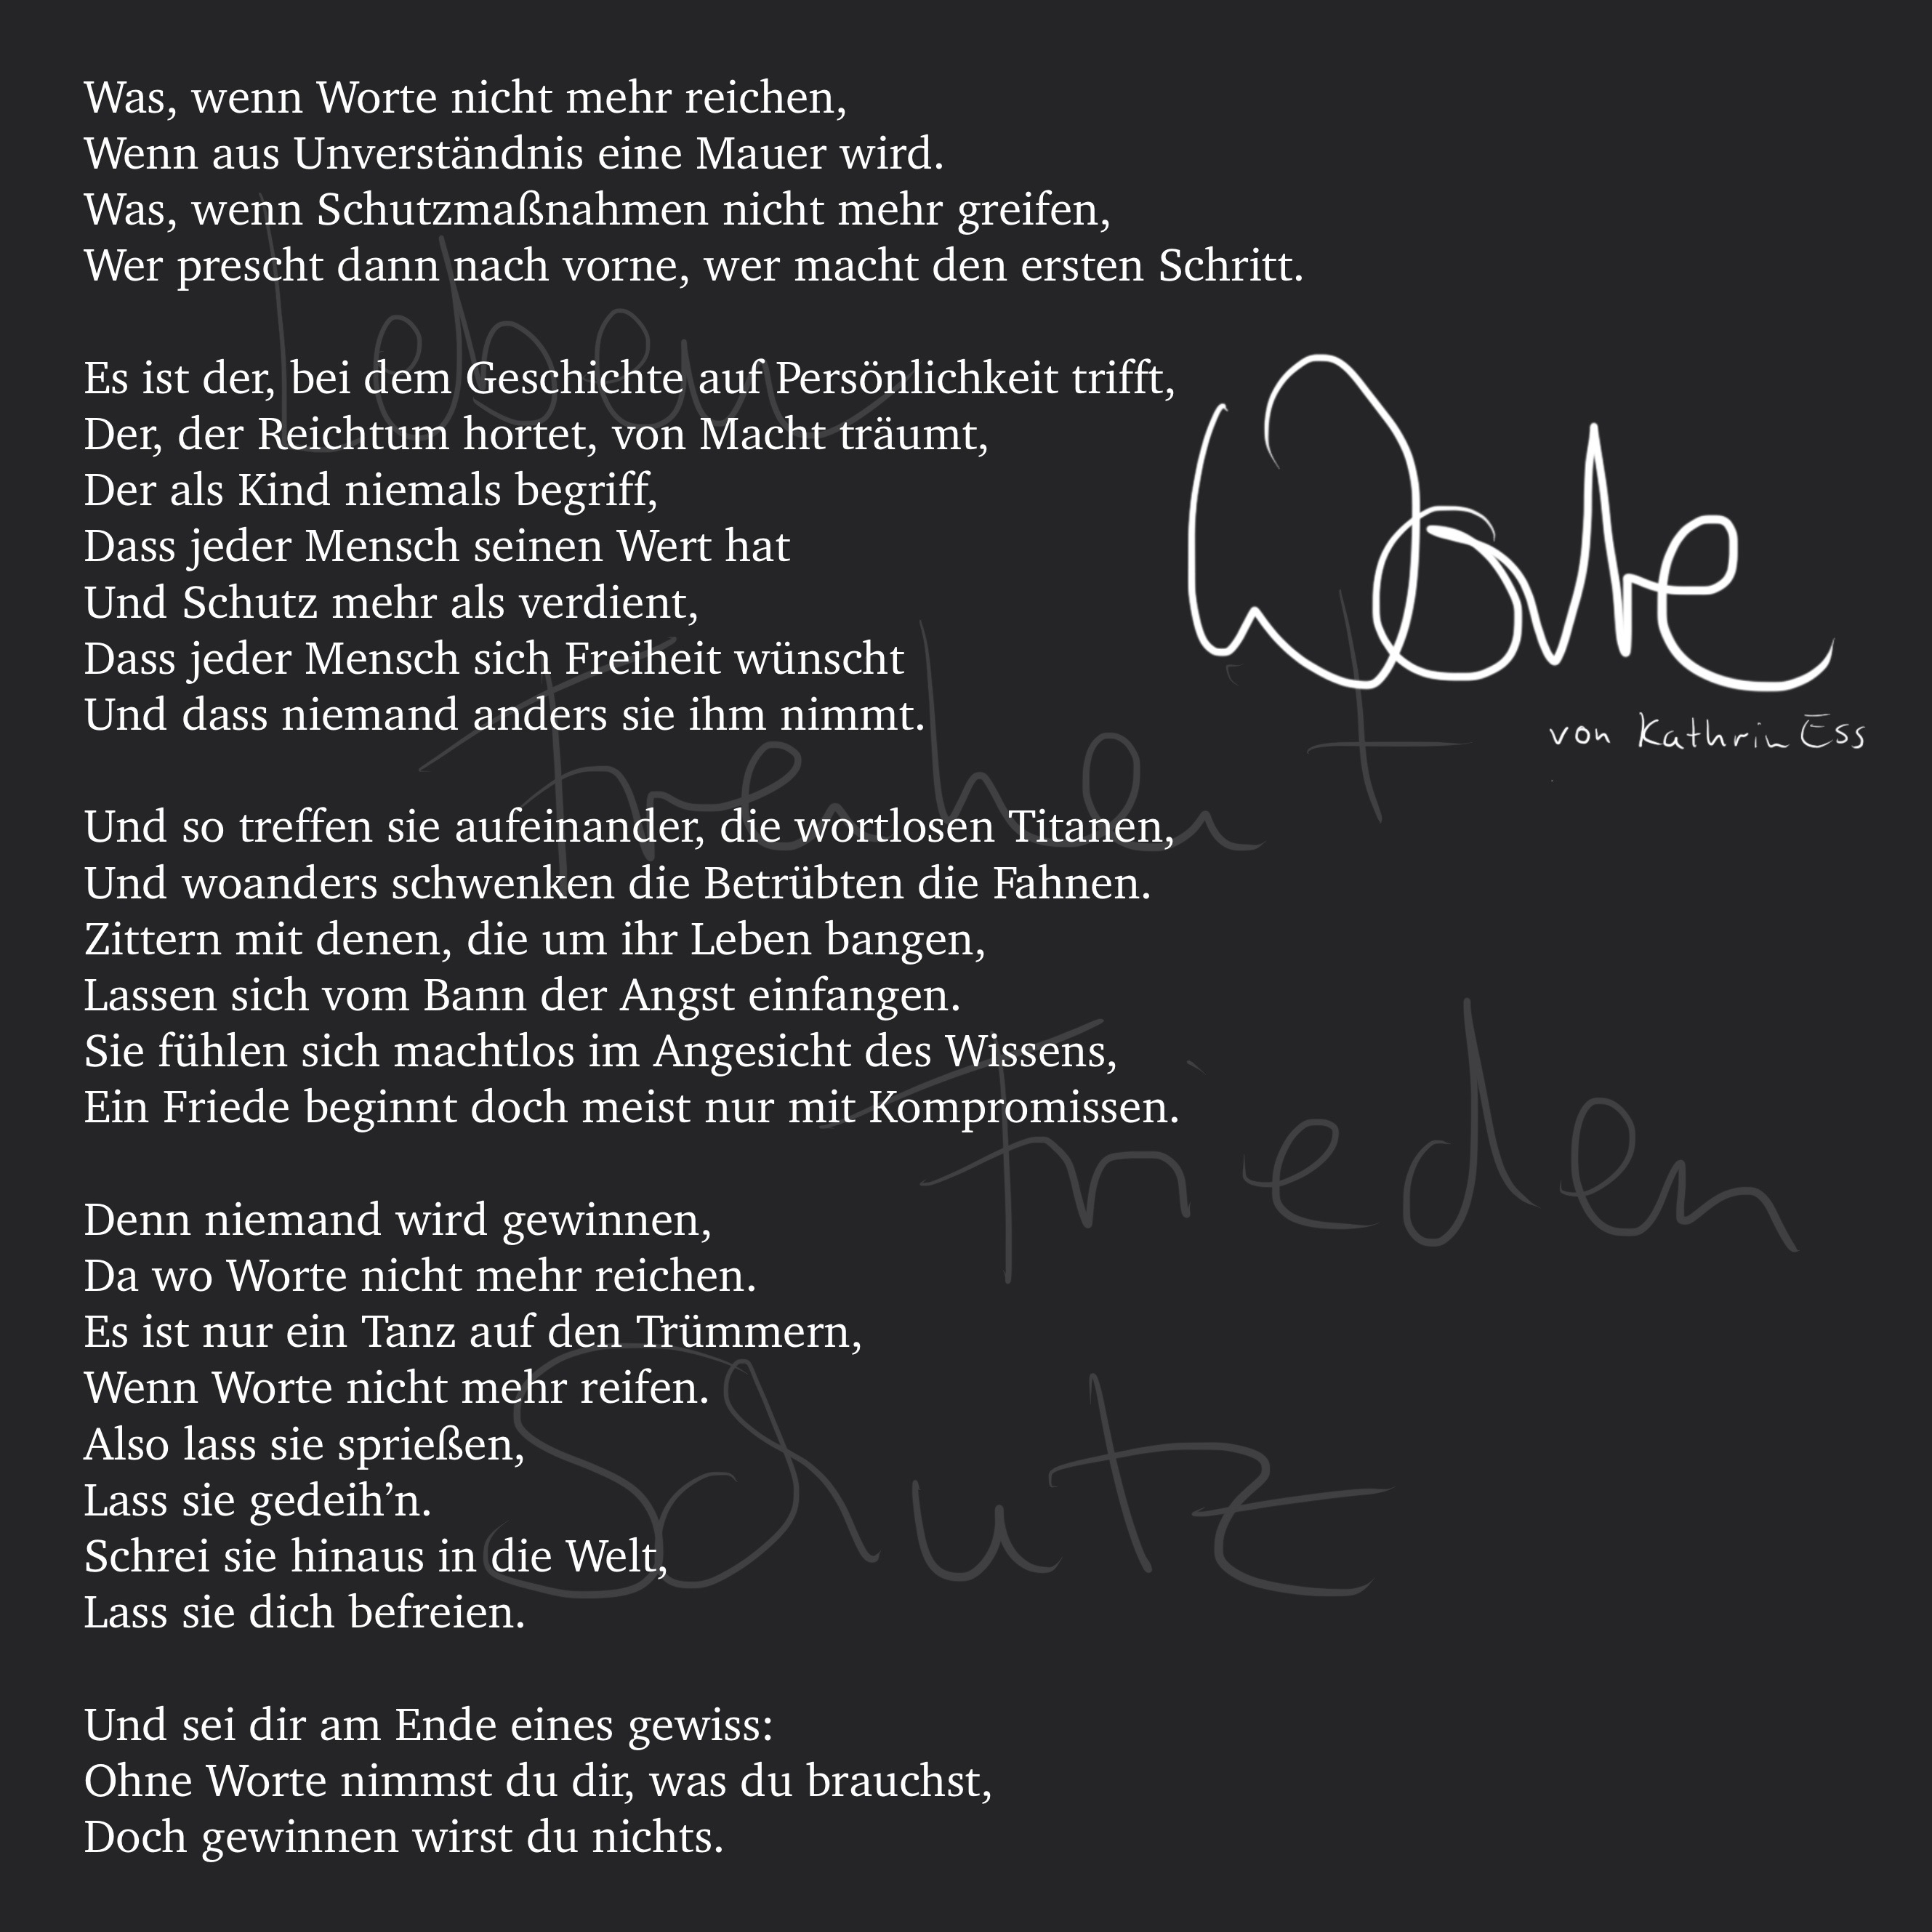 Was, wenn Worte nicht mehr reichen,
Wenn aus Unverständnis eine Mauer wird.
Was, wenn Schutzmaßnahmen nicht mehr greifen,
Wer prescht dann nach vorne, wer macht den ersten Schritt.
Leben
Es ist der, bei dem Geschichte auf Persönlichkeit trifft,
Der, der Reichtum hortet, von Macht träumt,
Der als Kind niemals begriff,
Dass jeder Mensch seinen Wert hat
Und Schutz mehr als verdient,
Dass jeder Mensch sich Freiheit wünscht
Und dass niemand anders sie ihm nimmt.
Worte
von Kathrin Ess
Freiheit
Und so treffen sie aufeinander, die wortlosen Titanen,
Und woanders schwenken die Betrübten die Fahnen.
Zittern mit denen, die um ihr Leben bangen,
Lassen sich vom Bann der Angst einfangen.
Sie fühlen sich machtlos im Angesicht des Wissens,
Ein Friede beginnt doch meist nur mit Kompromissen.
Frieden
Denn niemand wird gewinnen,
Da wo Worte nicht mehr reichen.
Es ist nur ein Tanz auf den Trümmern,
Wenn Worte nicht mehr reifen.
Also lass sie sprießen,
Lass sie gedeih’n.
Schrei sie hinaus in die Welt,
Lass sie dich befreien.
Schutz
Und sei dir am Ende eines gewiss:
Ohne Worte nimmst du dir, was du brauchst,
Doch gewinnen wirst du nichts.